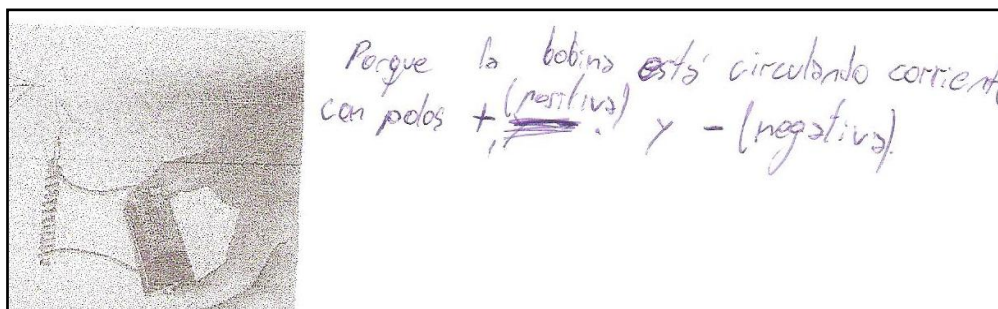 Porque la bobina está circulando corriente
con polos + (positiva) y - (negativa).